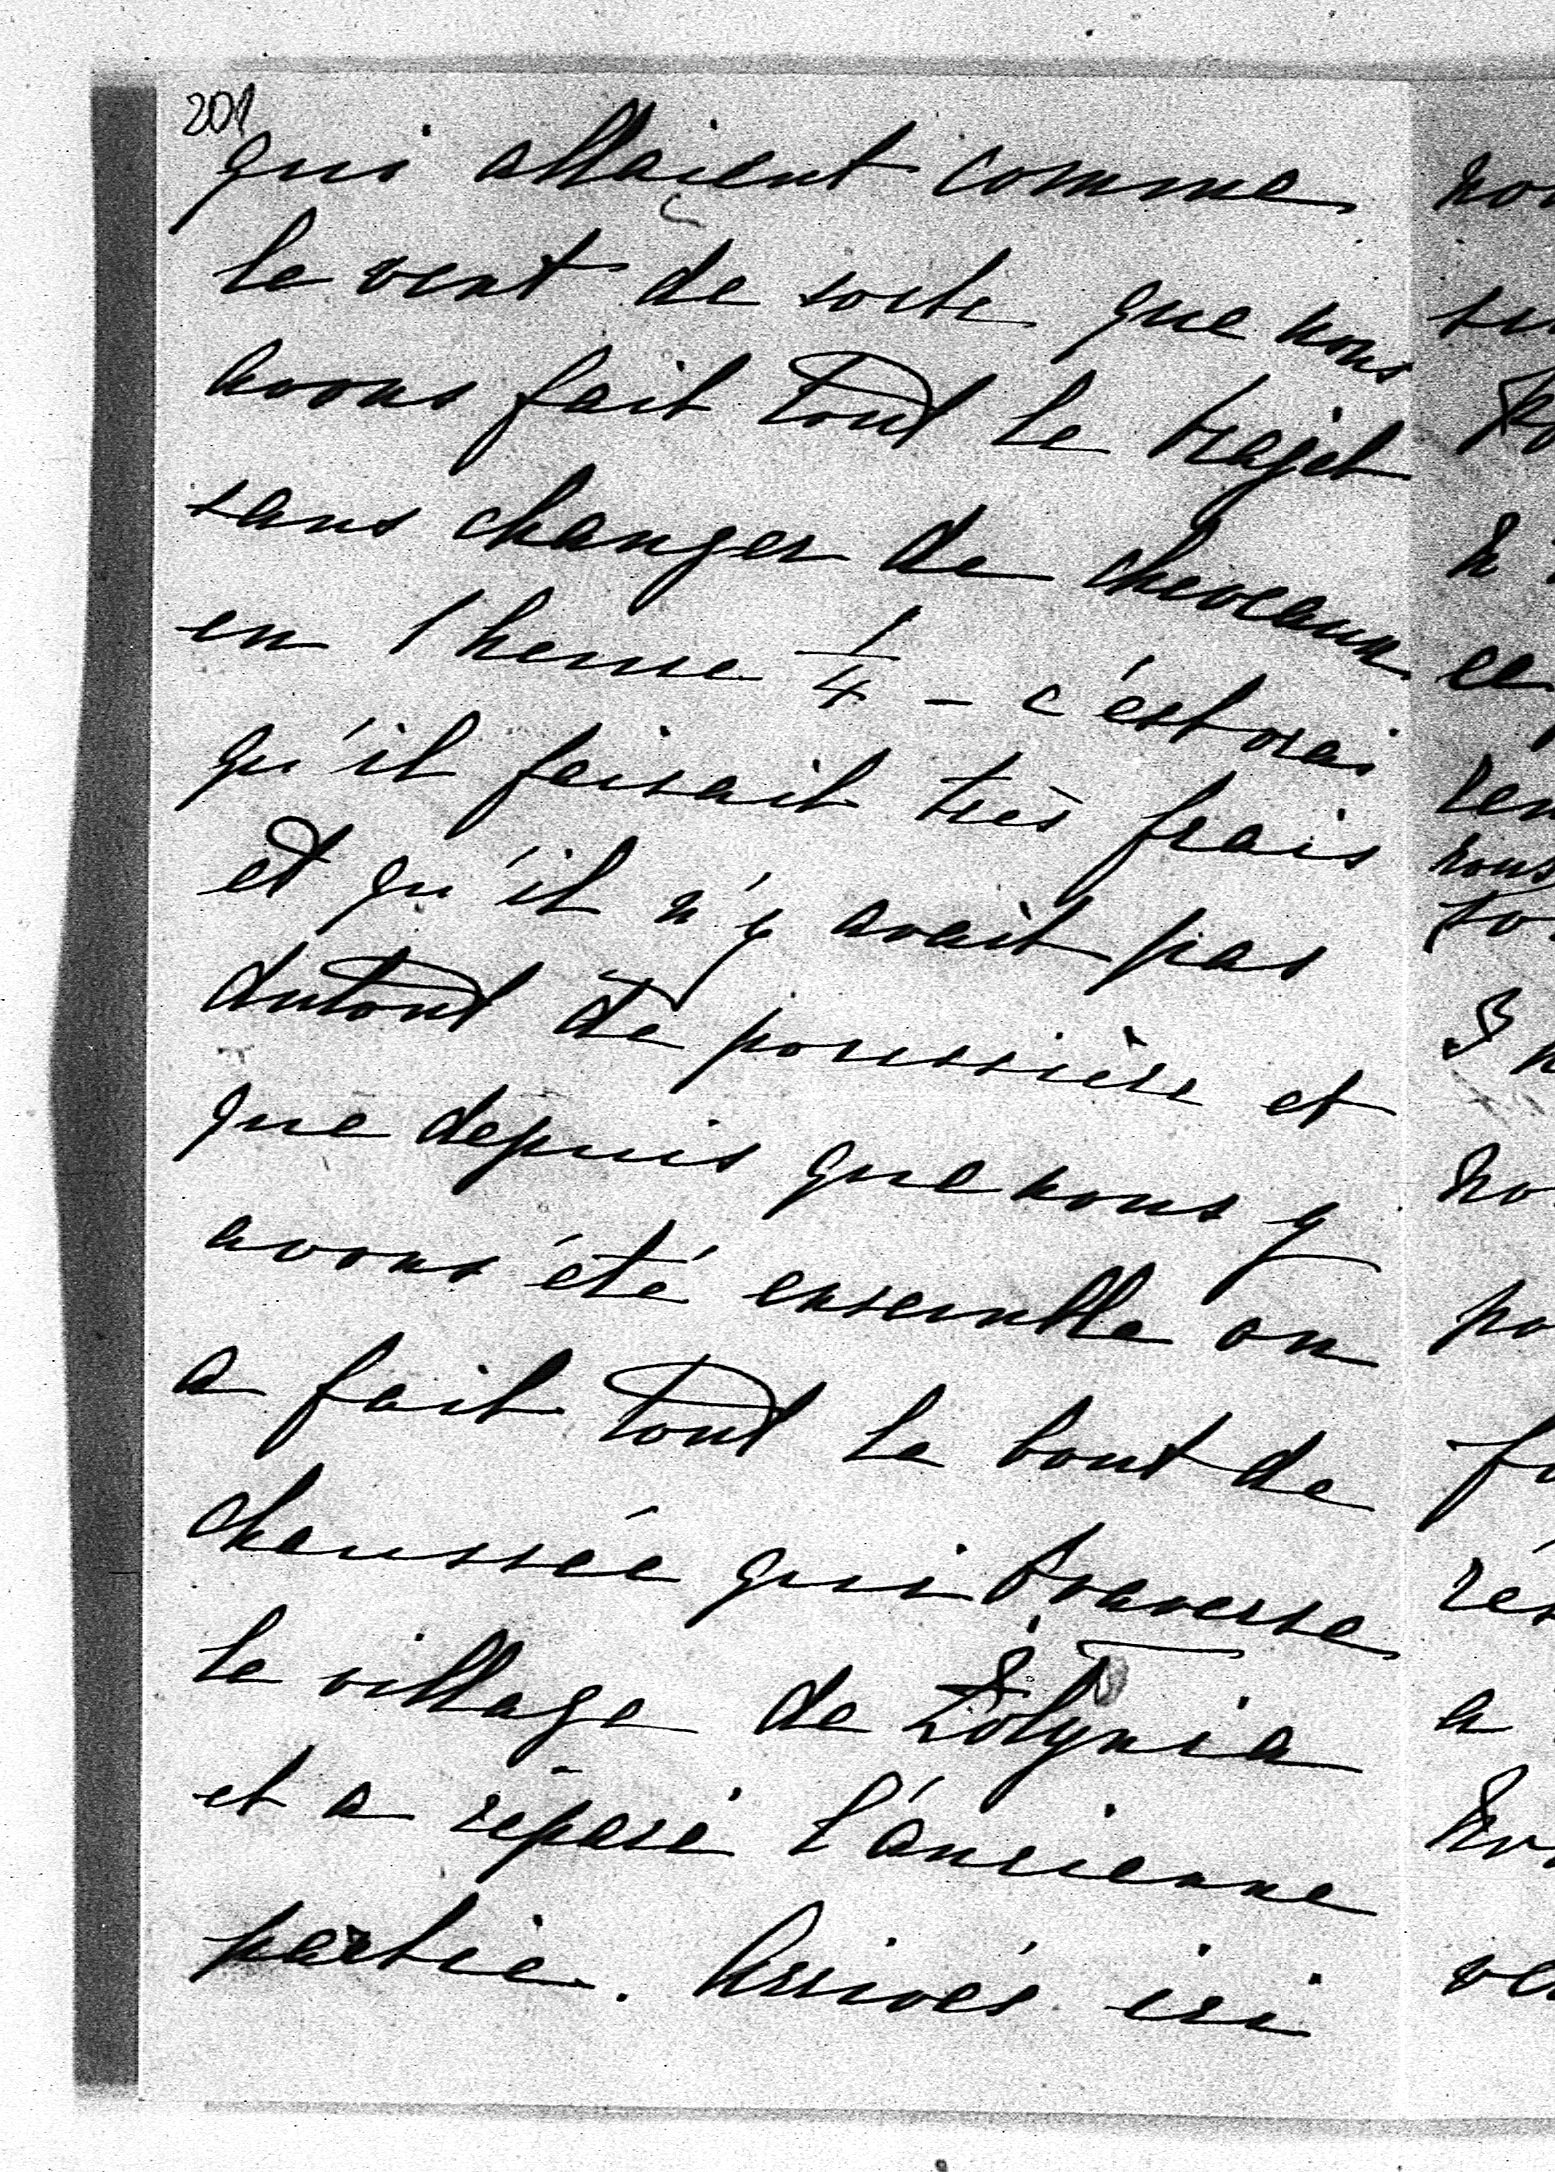 201
qui allaient comme
le vent de sorte que nous
avons fait tout le trajet
sans changer de chevaux
en 1 heure 1/4 - c'est vrai
qu'il faisait très frais
et qu'il n'y avait pas
dutout de poussière et
que depuis que nous y
avons été ensemble on
a fait tout le bout de
chaussée qui traverse
le village de Żołynia
et a réparé l'ancienne
partie. Arrivés ici